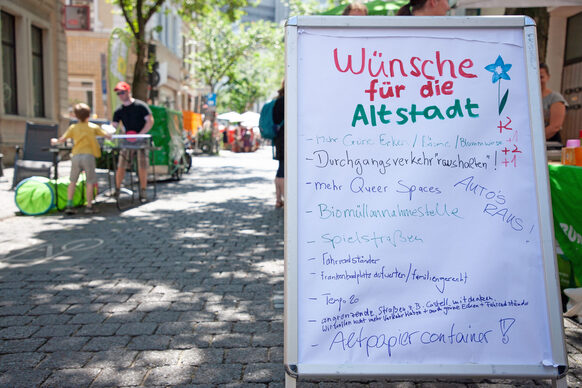 Wünsche
für die
Altstadt
- mehr Grüne Ecken / Bäume / Blumenwiese +2
- Durchgangsverkehr "raushalten"! +2 +1
- mehr Queer Spaces
AUTO'S
RAUS!
- Biomüllannahmestelle
- Spielstraßen
- Fahrradständer
- Frankenbadplatz aufwerten / familiengerecht
- Tempo 20
- angrenzende Straßen z.B. Castell mit denken
Wir wollen nicht mehr Verkehr haben + auch grüne Ecken + Fahrradstände
- Altpapiercontainer!